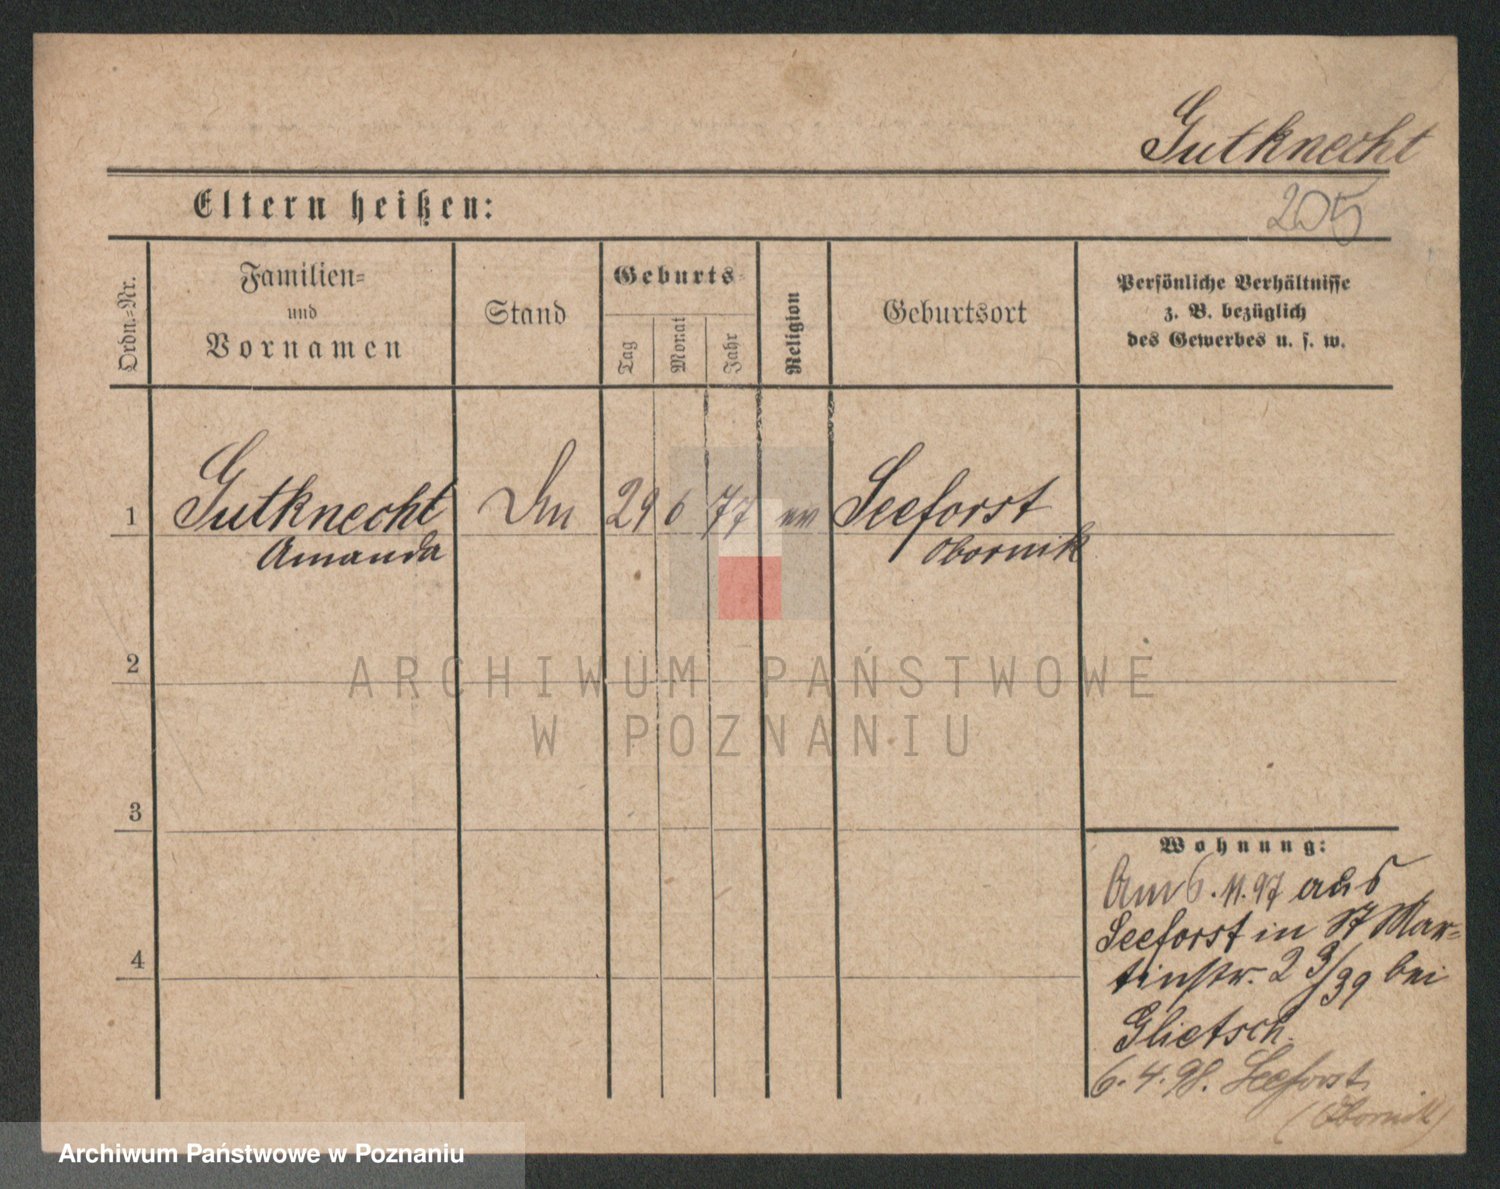 Gutknecht
205
Eltern heißen:
Ordn.-Nr.
Familien-
und
Vornamen
Stand
Geburts-
Tag
Monat
Jahr
Religion
Geburtsort
Persönliche Verhältnisse
z. B. bezüglich
des Gewerbes u. s. w.
1 Gutknecht 29 6 77 ev Seeforst
Amanda Obornik
2
ARCHIWUM PAŃSTWOWE
W POZNANIU
3
Wohnung:
Am 6.11.97 aus
Seeforst in St Mar-
tinstr. 23/39 bei
4
Glietsch.
6.4.98. Seeforst
(Obornik)
Archiwum Państwowe w Poznaniu